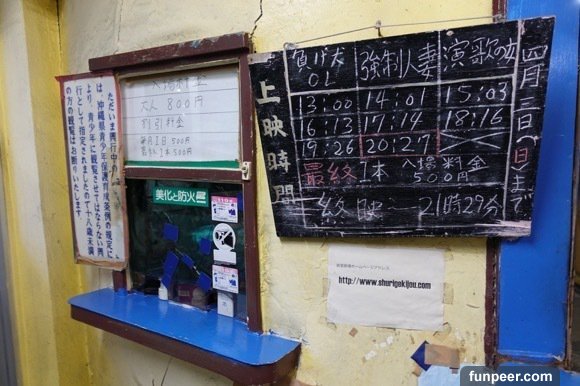 ただいま興行中の
は、沖縄県青少年保護育成条例の規定に
より、青少年に観覧させてはならない興
行として指定されましたので十八歳未満
の方の観覧はお断りいたします。
入場料金
大人 800円
割引料金
毎月1日 500円
最終1本 500円
美化と防火
上映時間
負け犬OL
強制人妻
演歌の女
13:00 14:01 15:03
16:13 17:14 18:16
19:26 20:27
最終1本 入場料金500円
終映 21時29分
四月三日(日)まで
首里劇場ホームページアドレス
http://www.shurigekijou.com
funpeer.com